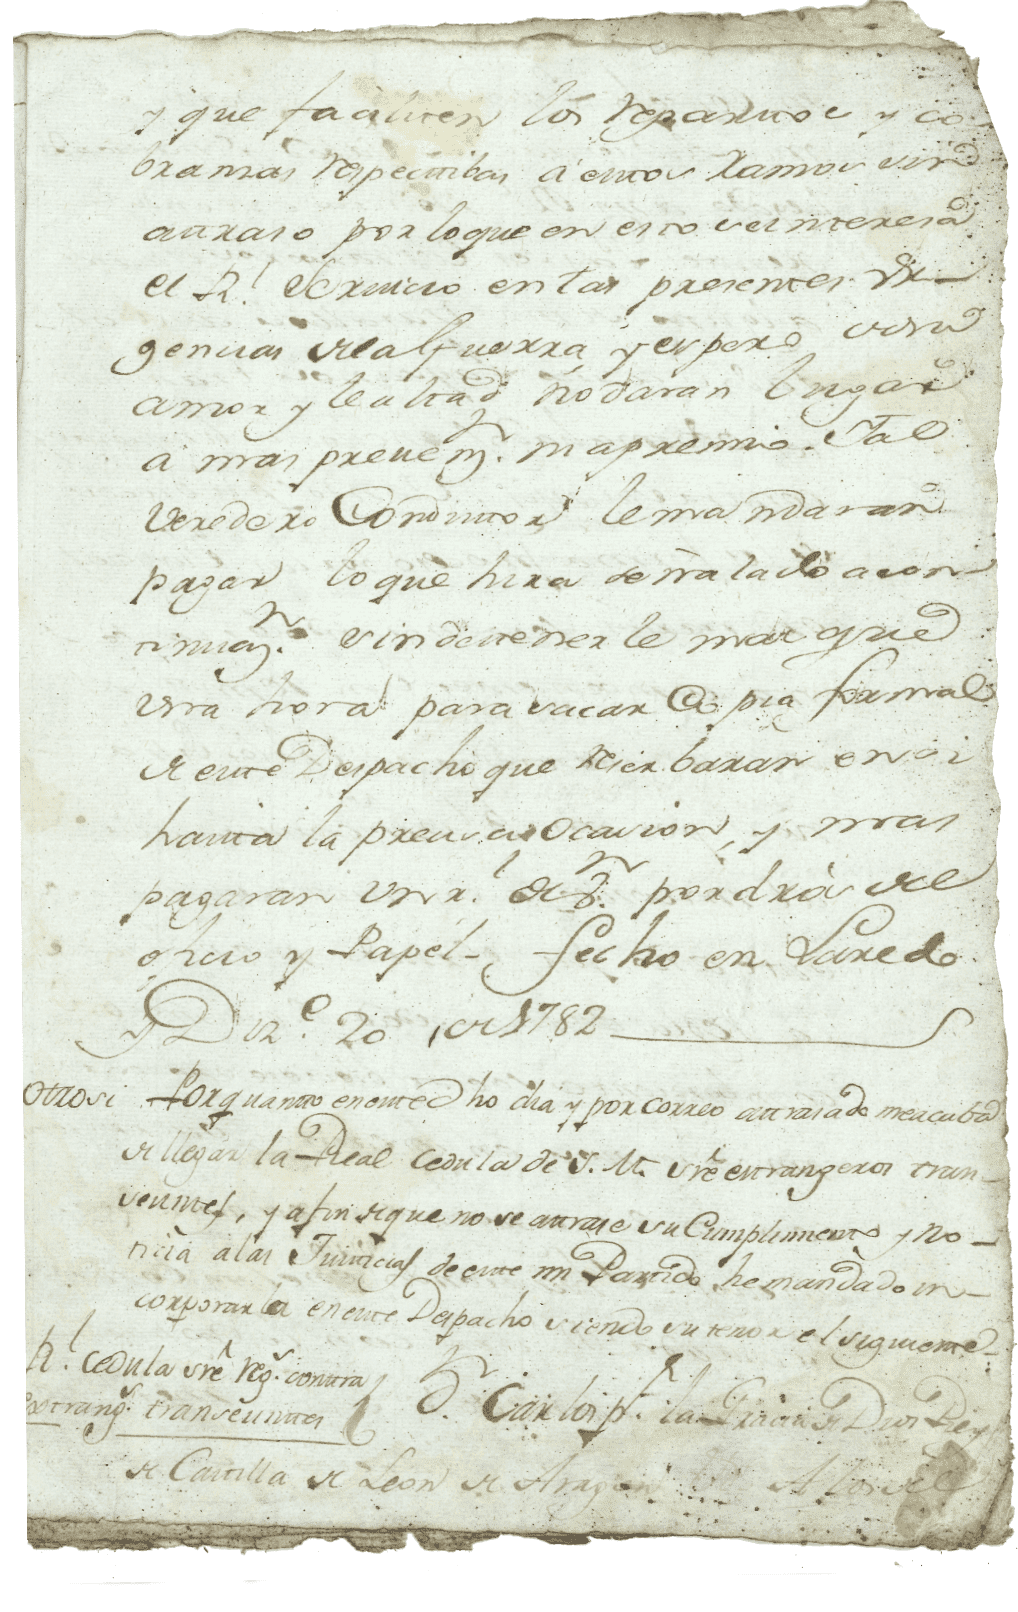 y que faciliten los repartos y co-
branzas respectibas a estos Ramos sin
atraso por lo que en esto se interesa
el Rl. Servicio en las presentes Ur-
gencias de la Guerra, y espero de su
amor y lealtad no daran lugar
a mas prevenn. ni apremio. Y al
Veredero Conductor le mandaran
pagar lo que hira señalado a con
tinuazn. sin detenerle mas que
una hora para sacar Copia formal
de este Despacho que reserbarán en si
hasta la precisa ocasion, y mas
pagaran un rl. de vn. por drôs de
oficio y Papél-, fecho en Laredo
y Dize. 20, de 1782
Otrosi Por quanto en este dho dia y por correo atrasado me acaba
de llegar la Real Cedula de S. M. sre estrangeros tran-
seuntes, y a fin de que no se atrase su Cumplimiento y no-
ticia a las Justicias de este mi Partido he mandado in-
corporarla en este Despacho siendo su tenor el siguiente-
Rl. Cedula sre regs. contra
Extrangs. transeuntes
Dn. Carlos pr. la Gracia de Dios Rey
de Castilla de Leon de Aragon de las dos